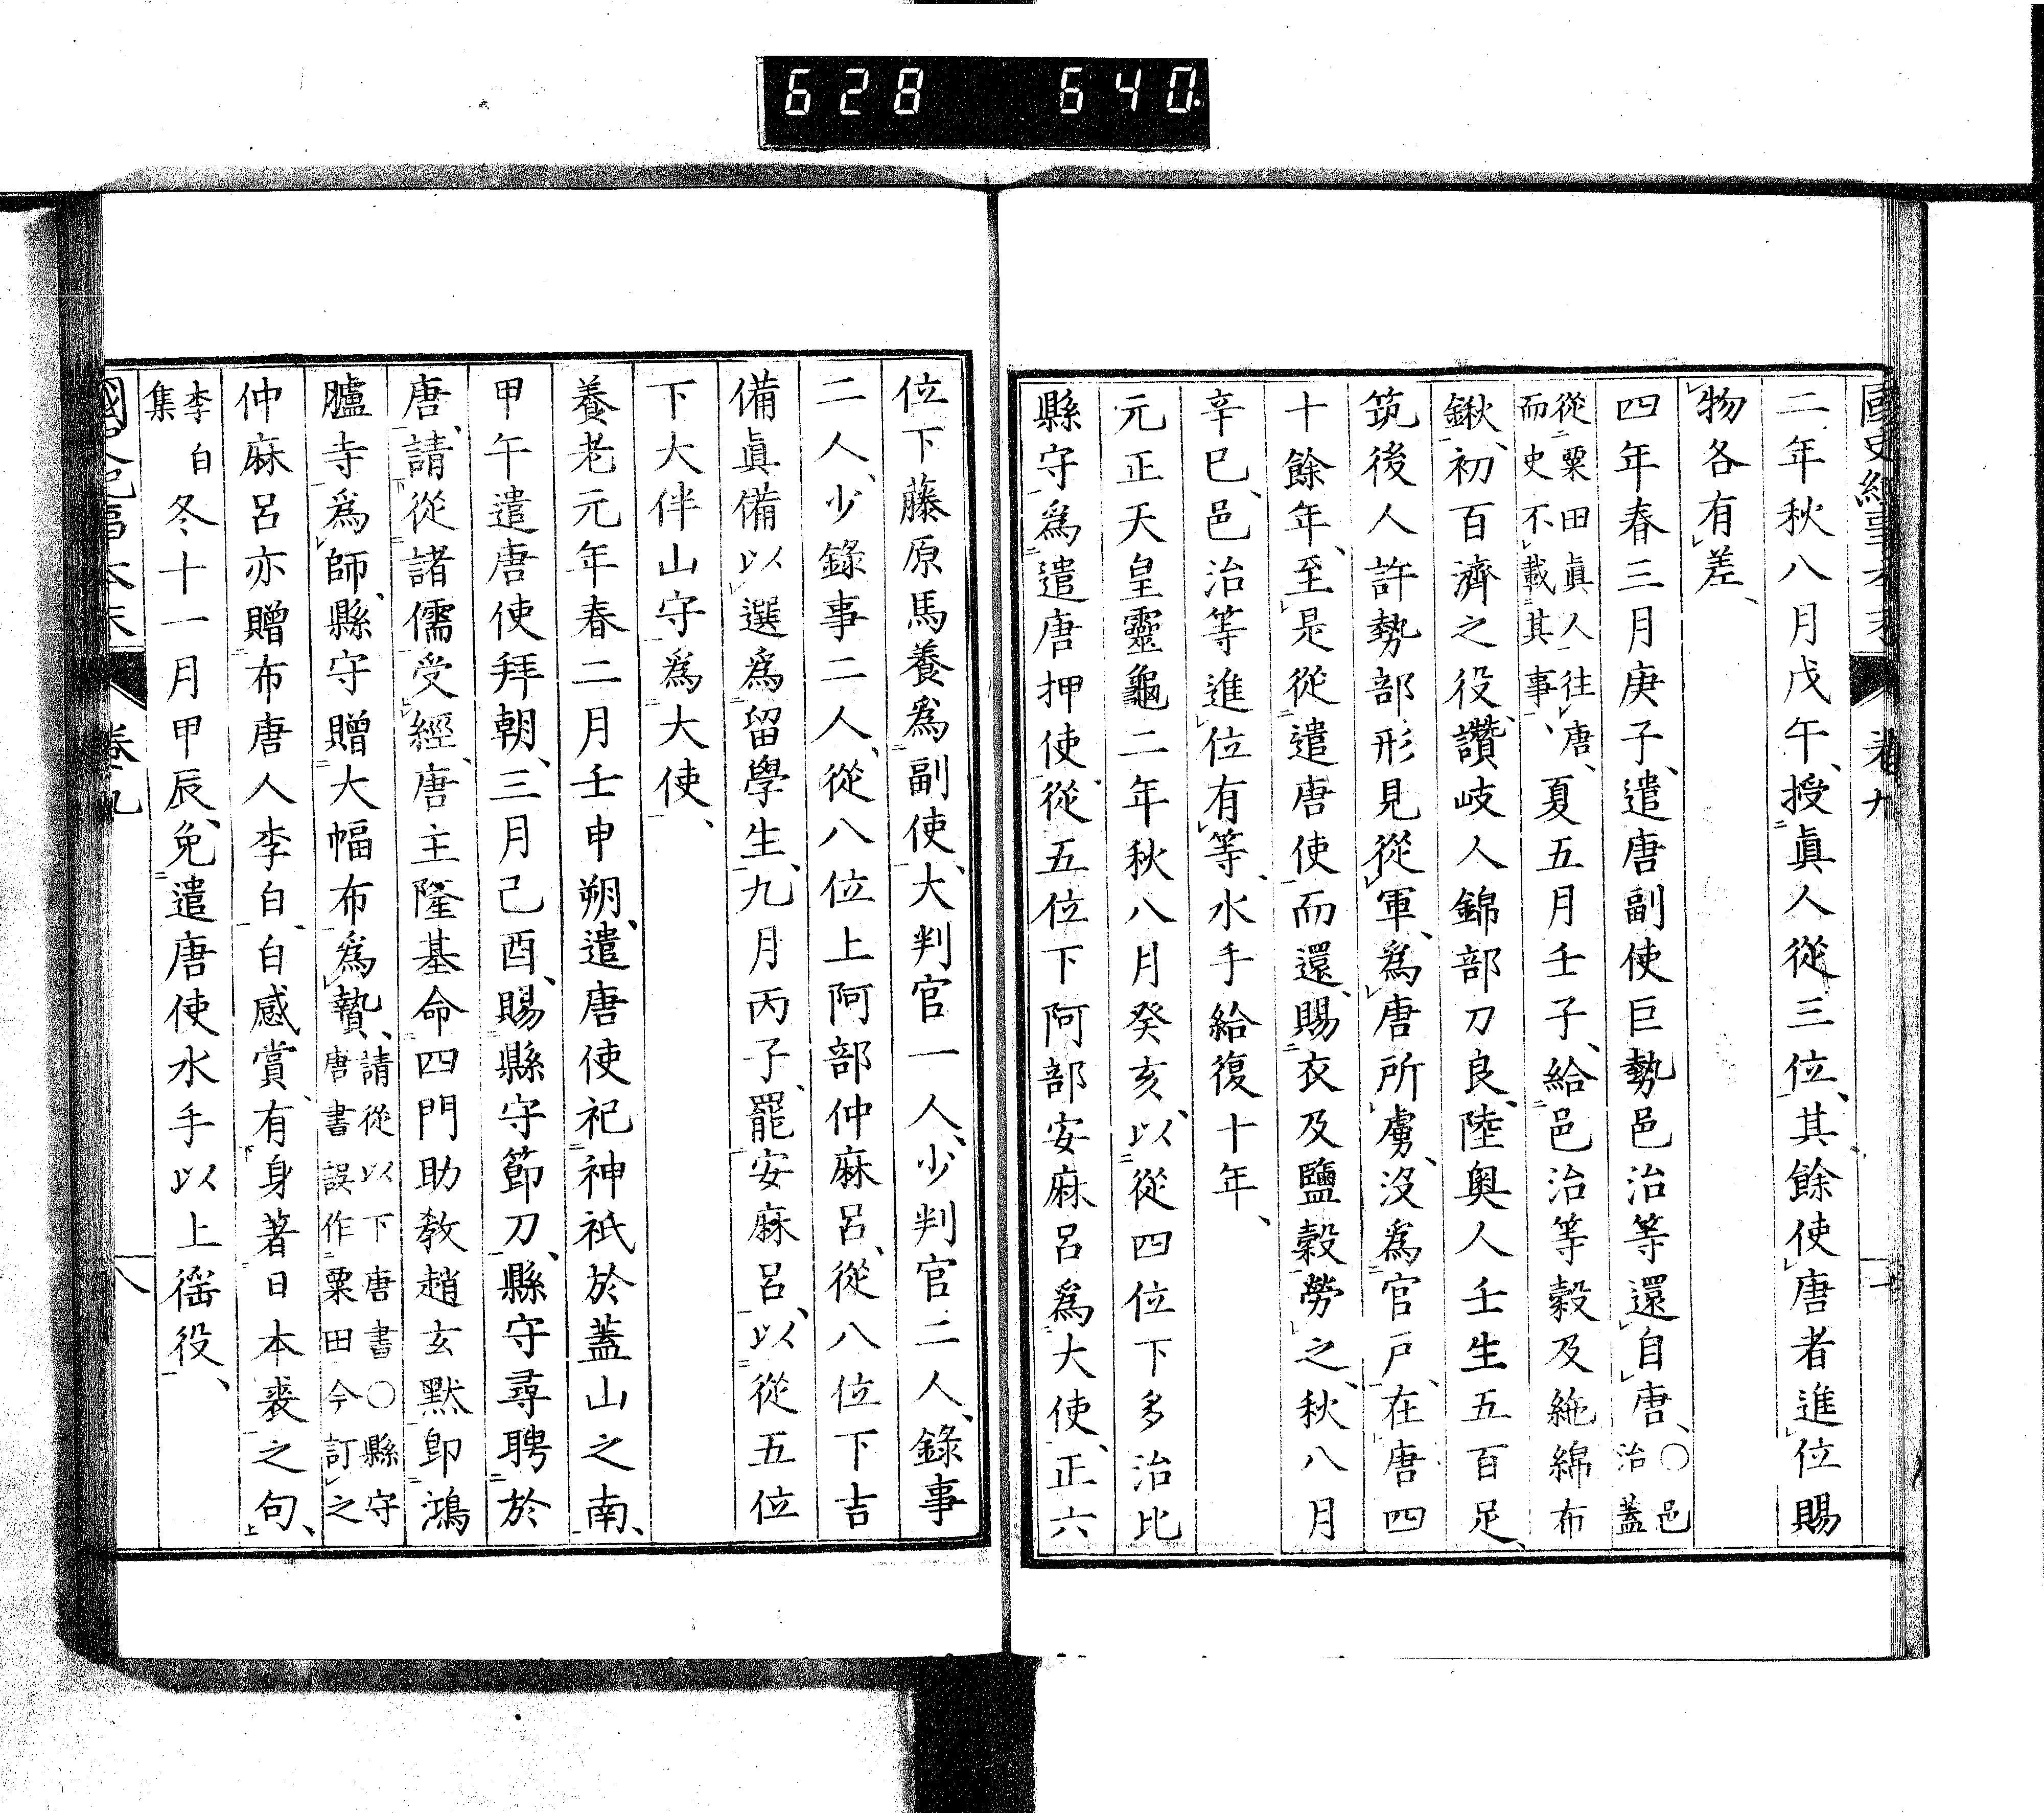 628 640.
二年秋八月戊午、授眞人從三位、其餘使唐者進位賜
物各有差、
四年春三月庚子、遣唐副使巨勢邑治等還自唐、〇邑治蓋
從粟田眞人往唐、而史不載其事、夏五月壬子、給邑治等穀及絁綿布
鍬、初百濟之役、讚岐人錦部刀良、陸奧人壬生五百足、
筑後人許勢部形見從軍、爲唐所虜、沒爲官戸、在唐四
十餘年、至是從遣唐使而還、賜衣及鹽穀勞之、秋八月
辛巳、邑治等進位有等、水手給復十年、
元正天皇靈龜二年秋八月癸亥、以從四位下多治比
縣守爲遣唐押使、從五位下阿部安麻呂爲大使、正六
位下藤原馬養爲副使、大判官一人、少判官二人、錄事
二人、少錄事二人、從八位上阿部仲麻呂、從八位下吉
備眞備以選爲留學生、九月丙子、罷安麻呂、以從五位
下大伴山守爲大使、
養老元年春二月壬申朔、遣唐使祀神祇於蓋山之南、
甲午遣唐使拜朝、三月己酉、賜縣守節刀、縣守尋聘於
唐、請從諸儒受經、唐主隆基命四門助教趙玄默卽鴻
臚寺爲師、縣守贈大幅布爲贄、請從以下唐書〇縣守唐書誤作粟田今訂之
仲麻呂亦贈布唐人李白、白感賞、有身著日本裘之句、
李白集冬十一月甲辰、免遣唐使水手以上徭役、
卷九
八